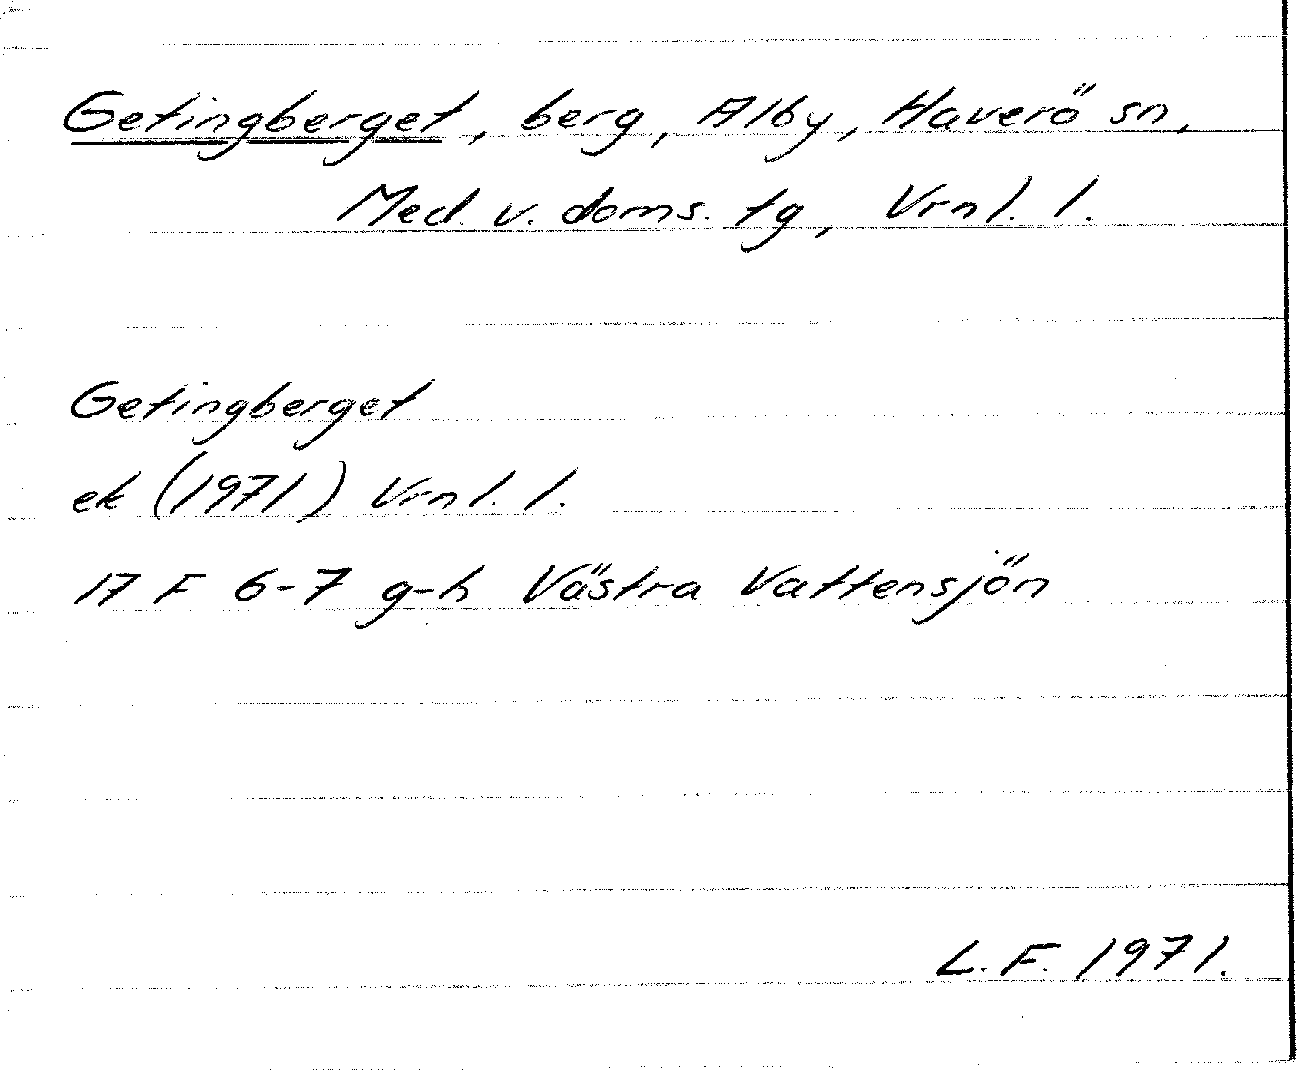 Getingberget, berg, Alby, Haverö sn,
Med. v. doms. tg, Vrnl. l.
Getingberget
ek (1971) Vrnl. l.
17 F 6-7 g-h Västra Vattensjön
L. F. 1971.